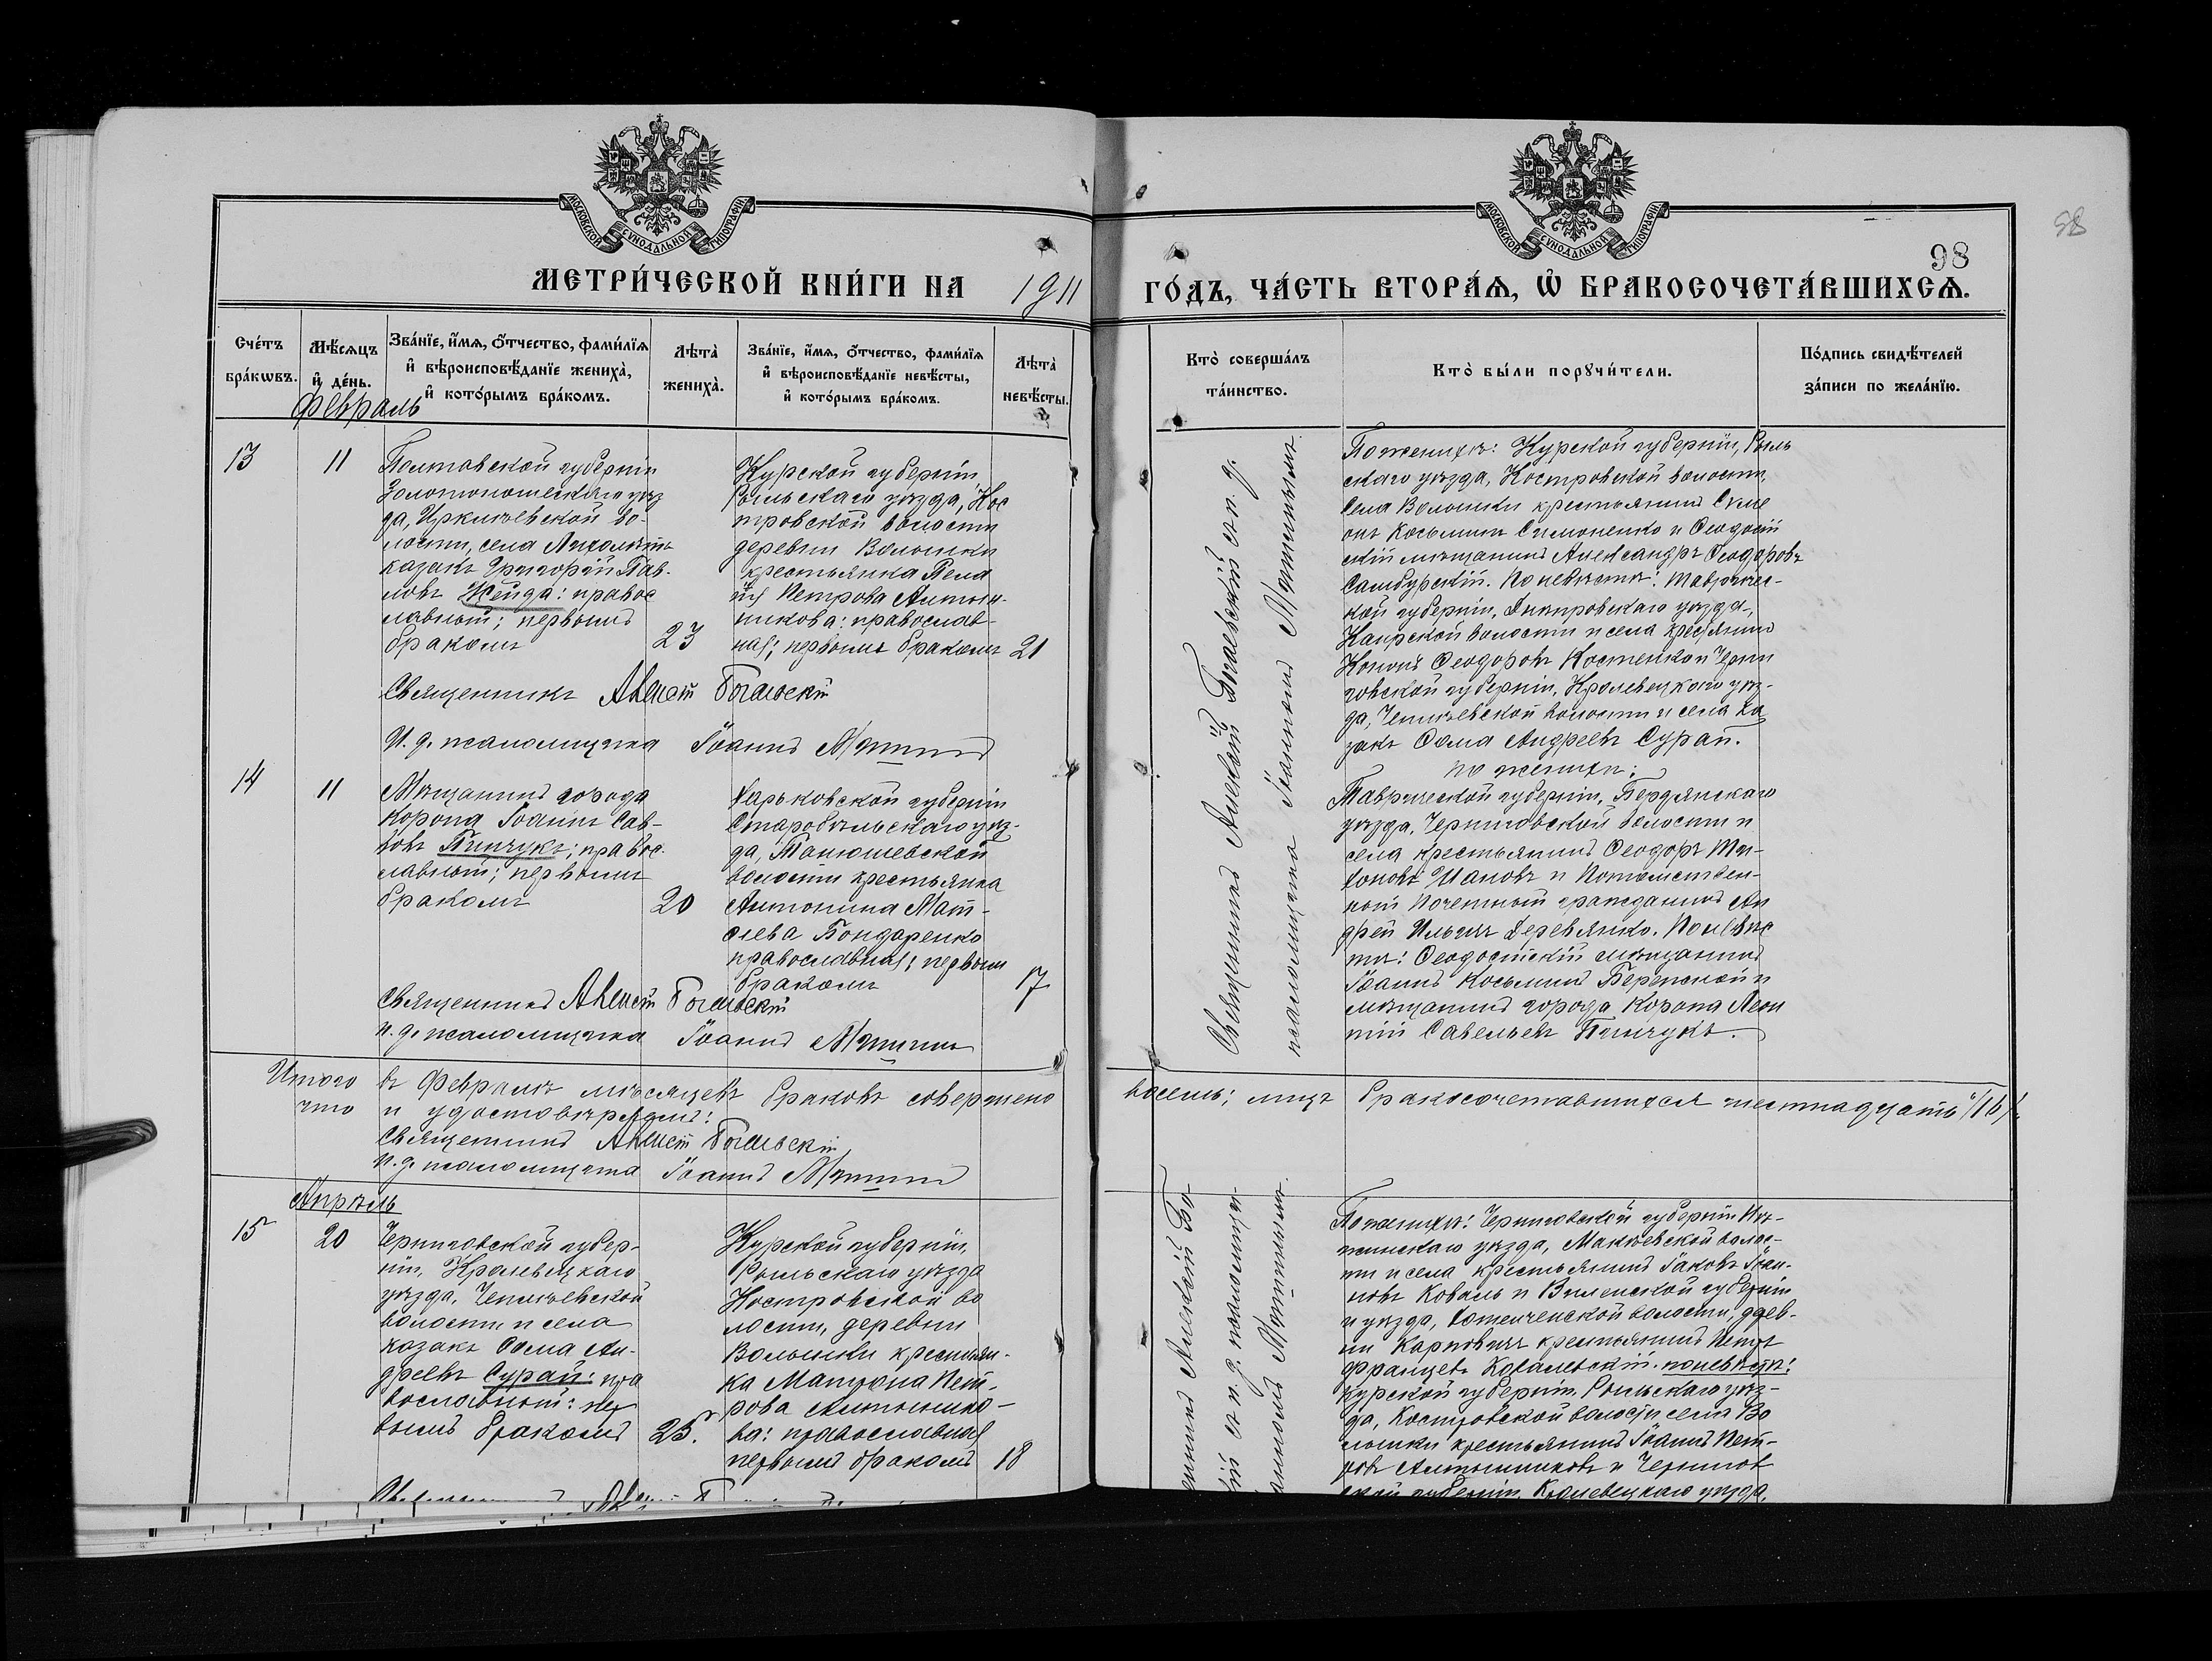 МОСКОВСКОЙ СѴНОДАЛЬНОЙ ТИПОГРАФІИ
МЕТРИ́ЧЕСКОЙ КНИ́ГИ НА 1911
Сче́тъ бра́кѡвъ.
Мѣ́сяцъ и҆ де́нь.
Зва́нїе, и҆́мѧ, ѻ҆́тчество, фами́лїѧ и҆ вѣроисповѣ́данїе жениха̀, и҆ кото́рымъ бра́комъ.
Лѣта̀ жениха̀.
Зва́нїе, и҆́мѧ, ѻ҆́тчество, фами́лїѧ и҆ вѣроисповѣ́данїе невѣ́сты, и҆ кото́рымъ бра́комъ.
Лѣта̀ невѣ́сты.
Февраль
13
11
Полтавской губерніи
Золотоношскаго уѣз
да, Ирклѣевской во-
лости, села
казакъ Григорій Пав-
ловъ Жейда: правос
лавный; первымъ
бракомъ
23
Курской губерніи
Рыльскаго уѣзда, Кос
тровской волости
деревни Волынки
крестьянка Пела
гія Петрова
православ-
ная; первымъ бракомъ
21
Священникъ Алексій
И. д. псаломщика Іоаннъ
14
11
Мѣщанинъ города
Коропа Іоаннъ Сав-
вовъ Пинчукъ; правос-
лавный; первымъ
бракомъ
20
Харьковской губерніи
Старобѣльскаго уѣз-
да, Танюшевской
волости крестьянка
Антонина Мат-
ѳіева Бондаренко
православная; первымъ
бракомъ
17
Священникъ Алексій
И. д. псаломщика Іоаннъ
Итого въ Февралѣ мѣсяцѣ браковъ совершено
что и удостовѣряемъ:
Священникъ Алексій
И. д. псаломщика Іоаннъ
Апрѣль
15
20
Черниговской губер-
ніи, Кролевецкаго
уѣзда,
волости и села
казакъ Ѳома Ан-
дреевъ Сурай: пра
вославный: пер
вымъ бракомъ
25.
Курской губерніи,
Рыльскаго уѣзда
Костровской во
лости, деревни
Волынки крестьян-
ка Матрона Пет-
рова
православная
первымъ бракомъ
18
МОСКОВСКОЙ СѴНОДАЛЬНОЙ ТИПОГРАФІИ
98
98
ГО́ДЪ, ЧА́СТЬ ВТОРА́Ѧ, Ѡ҆ БРАКОСОЧЕТА́ВШИХСѦ.
Кто̀ соверша́лъ та́инство.
Кто̀ бы́ли порꙋчи́тели.
По́дпись свидѣ́телей за́писи по жела́нїю.
Священникъ Алексій и и. д.
псаломщика Іоаннъ
По женихѣ: Курской губерніи, Рыль
скаго уѣзда, Костровской волости,
села Волынки крестьянинъ Симе
онъ Косьминъ Симоненко и Ѳеодосій
скій мѣщанинъ Александръ Ѳеодоровъ
Самбурскій. По невѣстѣ: Тавричес-
кой губерніи, Днѣпровскаго уѣзда,
Каирской волости и села крестьянинъ
Кононъ Ѳеодоровъ Костенко и Черни
говской губерніи, Кролевецкаго уѣз-
да, волости и села ка
закъ Ѳома Андреевъ Сурай.
По женихѣ:
Таврической губерніи, Бердянскаго
уѣзда, Черниговской волости и
села крестьянинъ Ѳеодоръ Ти-
хоновъ и Потомствен-
ный почетный гражданинъ Ан
дрей Ильинъ Деревянко. По невѣс
тѣ: Ѳеодосійскій мѣщанинъ
Іоаннъ Косьминъ и
мѣщанинъ города Коропа Леон
тій Савельевъ Пинчукъ.
восемь; лицъ бракосочетавшихся шестнадцать /16/.
По женихѣ: Черниговской губерніи Нѣ-
жинскаго уѣзда, Макѣевской волос-
ти и села крестьянинъ Іаковъ Іоан-
новъ Коваль и Виленской губерніи
и уѣзда, волости,
крестьянинъ Петръ
Францевъ Ковалевскій. По невѣстѣ:
Курской губерніи, Рыльскаго уѣз-
да, Костровской волости села Во
лынки крестьянинъ Іоаннъ Пет-
ровъ и Чернигов
ской губерніи, Кролевецкаго уѣзда,